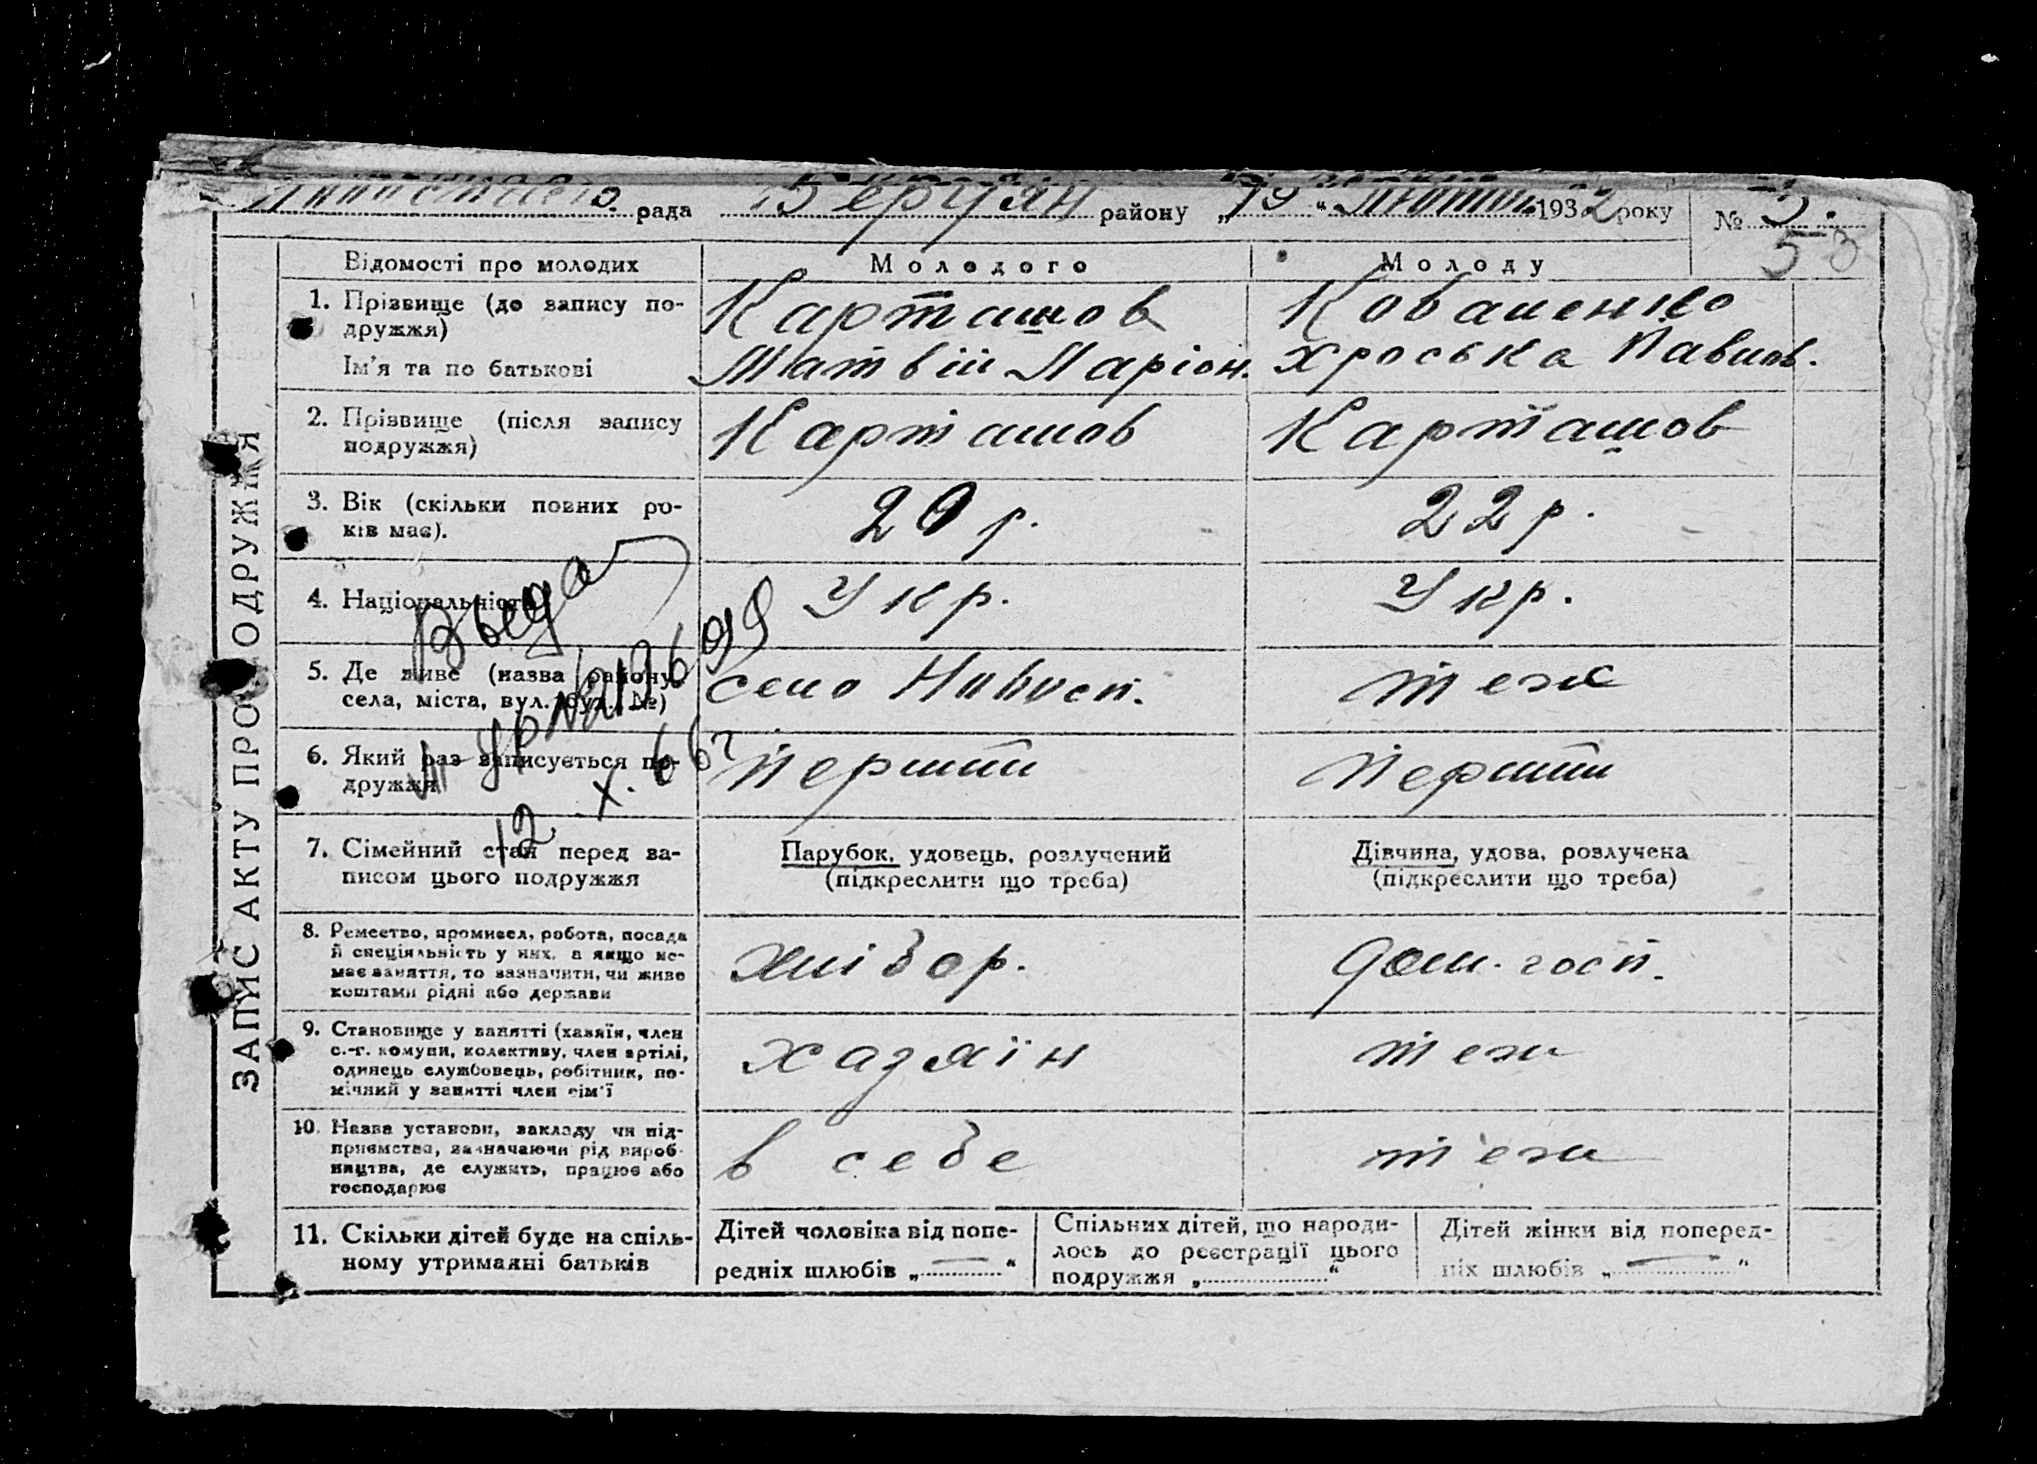 рада Бердян району „19“ Лютого 1932 року № 3.
53
ЗАПИС АКТУ ПРО ОДРУЖЖЯ
Відомості про молодих Молодого Молоду
1. Прізвище (до запису по-
дружжя) Карташов Коваленко
Ім'я та по батькові Матвій Ларіон. Хроська Павлов.
2. Прізвище (після запису
подружжя) Карташов Карташов
3. Вік (скільки повних ро-
ків має). 20 р. 22 р.
4. Національність Укр. Укр.
5. Де живе (назва району,
села, міста, вул. буд. №) село Новосп. теж
6. Який раз записується по-
дружжя перший перший
12 X. 66 г
7. Сімейний стан перед за-
писом цього подружжя
Парубок, удовець, розлучений
(підкреслити що треба)
Дівчина, удова, розлучена
(підкреслити що треба)
8. Ремество, промисел, робота, посада
й спеціяльність у них, а якщо не-
має заняття, то зазначити, чи живе
коштами рідні або держави
хлібор. дом. госп.
9. Становище у занятті (хазяїн, член
с.-г. комуни, колективу, член артілі,
одинець службовець, робітник, по-
мічний у занятті член сім'ї
хазяїн теж
10. Назва установи, закладу чи під-
приємства, зазначаючи рід вироб-
ництва, де служить, працює або
господарює
в себе теж
11. Скільки дітей буде на спіль-
ному утриманні батьків
Дітей чоловіка від попе-
редніх шлюбів „—“
Спільних дітей, що народи-
лось до реєстрації цього
подружжя „ “
Дітей жінки від поперед-
ніх шлюбів „—“